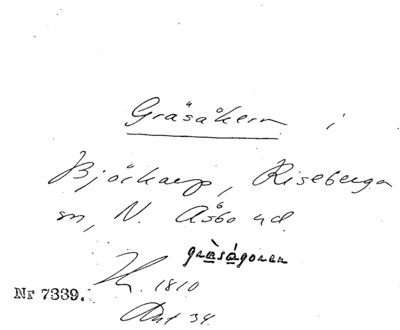 Gräsåkern i
Björkarp, Riseberga
sn, N. Åsbo hd.
gràsågoren
1810
Nr 7339.
Akt 34